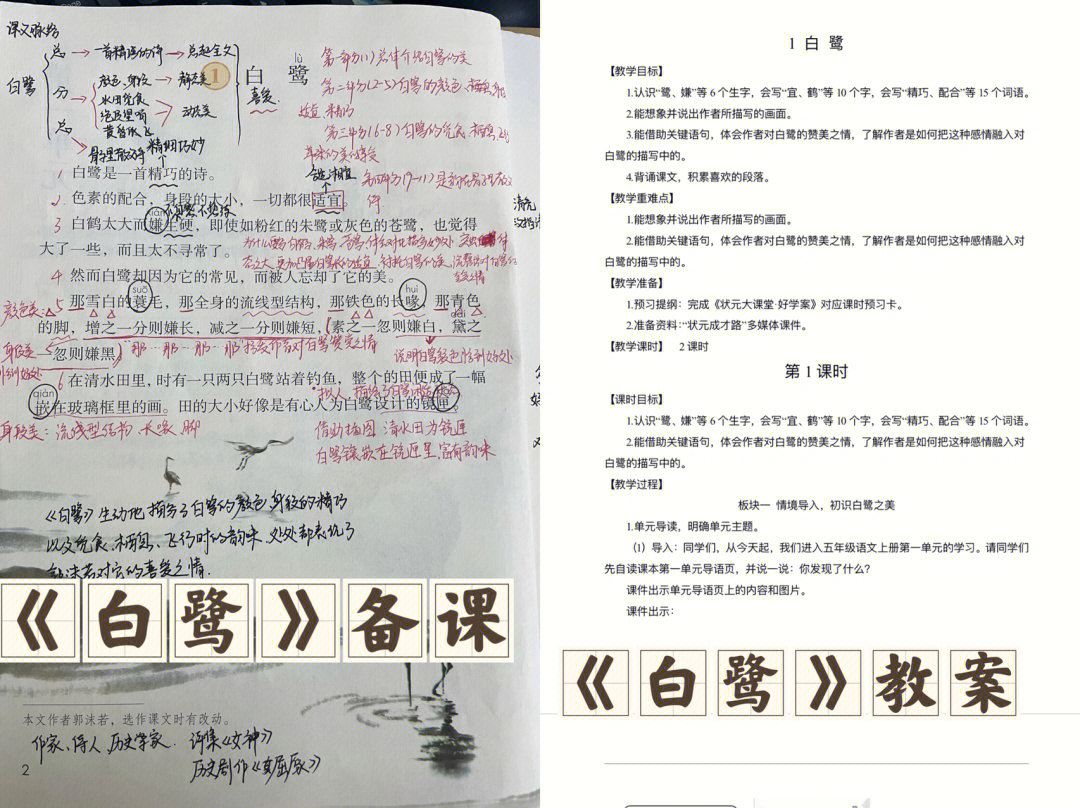 课文脉络
总 → 一首精巧的诗 → 总起全文
白鹭
分 → 颜色、身段 → 静态美
水田觅食
→ 动态美
黄昏低飞
总
1
白鹭
lù
喜爱
精细巧妙
第一部分(1)总体介绍白鹭的美
第二部分(2-5)白鹭的颜色、
适宜 精巧
第三部分(6-8)白鹭的觅食、栖息、
第四部分(9-11)
合适、相宜
1 白鹭是一首精巧的诗。
2 色素的配合,身段的大小,一切都很适宜。
3 白鹤太大而嫌生硬,即使如粉红的朱鹭或灰色的苍鹭,也觉得
xián
大了一些,而且太不寻常了。
4 然而白鹭却因为它的常见,而被人忘却了它的美。
suō
huì
5 那雪白的蓑毛,那全身的流线型结构,那铁色的长喙,那青色
颜色美:
dài
的脚,增之一分则嫌长,减之一分则嫌短,素之一忽则嫌白,黛之
一忽则嫌黑。
身段美
“那…那…那…那”
说明白鹭颜色恰到好处
恰到好处
6 在清水田里,时有一只两只白鹭站着钓鱼,整个的田便成了一幅
qiàn
嵌在玻璃框里的画。田的大小好像是有心人为白鹭设计的镜匣。
身段美:流线型结构、长喙、脚
借助插图 清水田为镜匣
白鹭镶嵌在镜匣里,富有韵味
《白鹭》生动地描写了白鹭的颜色、身段的精巧
以及觅食、栖息、飞行时的韵味,处处都表现了
郭沫若对它的喜爱之情.
《白鹭》备课
本文作者郭沫若,选作课文时有改动。
作家、诗人、历史学家. 诗集《女神》
历史剧作《屈原》
2
1 白 鹭
【教学目标】
1.认识“鹭、嫌”等 6 个生字,会写“宜、鹤”等 10 个字,会写“精巧、配合”等 15 个词语。
2.能想象并说出作者所描写的画面。
3.能借助关键语句,体会作者对白鹭的赞美之情,了解作者是如何把这种感情融入对
白鹭的描写中的。
4.背诵课文,积累喜欢的段落。
【教学重难点】
1.能想象并说出作者所描写的画面。
2.能借助关键语句,体会作者对白鹭的赞美之情,了解作者是如何把这种感情融入对
白鹭的描写中的。
【教学准备】
1.预习提纲:完成《状元大课堂·好学案》对应课时预习卡。
2.准备资料:“状元成才路”多媒体课件。
【教学课时】 2 课时
第 1 课时
【课时目标】
1.认识“鹭、嫌”等 6 个生字,会写“宜、鹤”等 10 个字,会写“精巧、配合”等 15 个词语。
2.能借助关键语句,体会作者对白鹭的赞美之情,了解作者是如何把这种感情融入对
白鹭的描写中的。
【教学过程】
板块一 情境导入,初识白鹭之美
1.单元导读,明确单元主题。
(1)导入:同学们,从今天起,我们进入五年级语文上册第一单元的学习。请同学们
先自读课本第一单元导语页,并说一说:你发现了什么?
课件出示单元导语页上的内容和图片。
课件出示:
《白鹭》教案